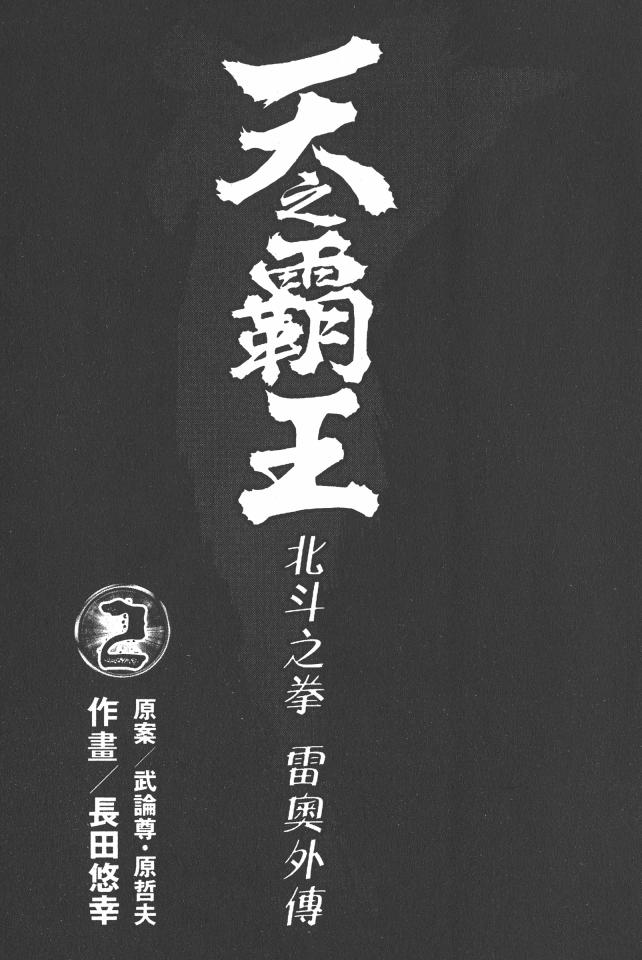 天之覇王
北斗之拳 雷奧外傳
2
原案／武論尊・原哲夫
作畫／長田悠幸